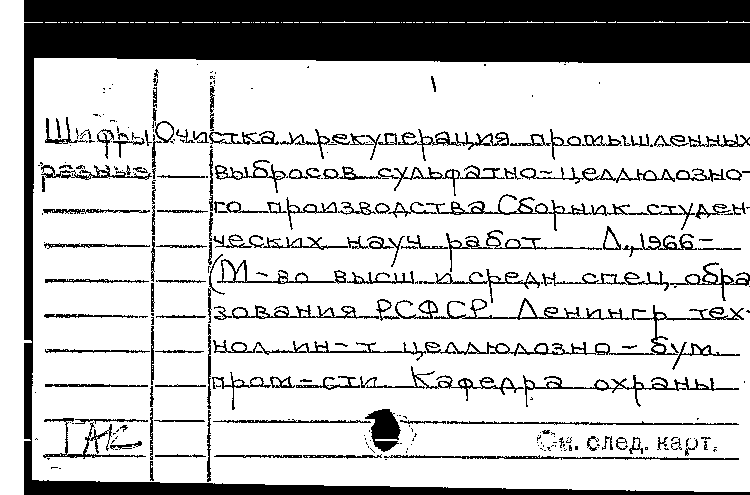 Шифры Очистка и рекуперация промышленных
разные выбросов сульфатно-целлюлозно-
го производства Сборник студен-
ческих науч работ Л., 1966-
(М-во высш и средн спец. обра
зования РСФСР. Ленингр тех-
нол ин-т целлюлозно-бум.
пром-сти Кафедра охраны
ГАК См. след. карт.